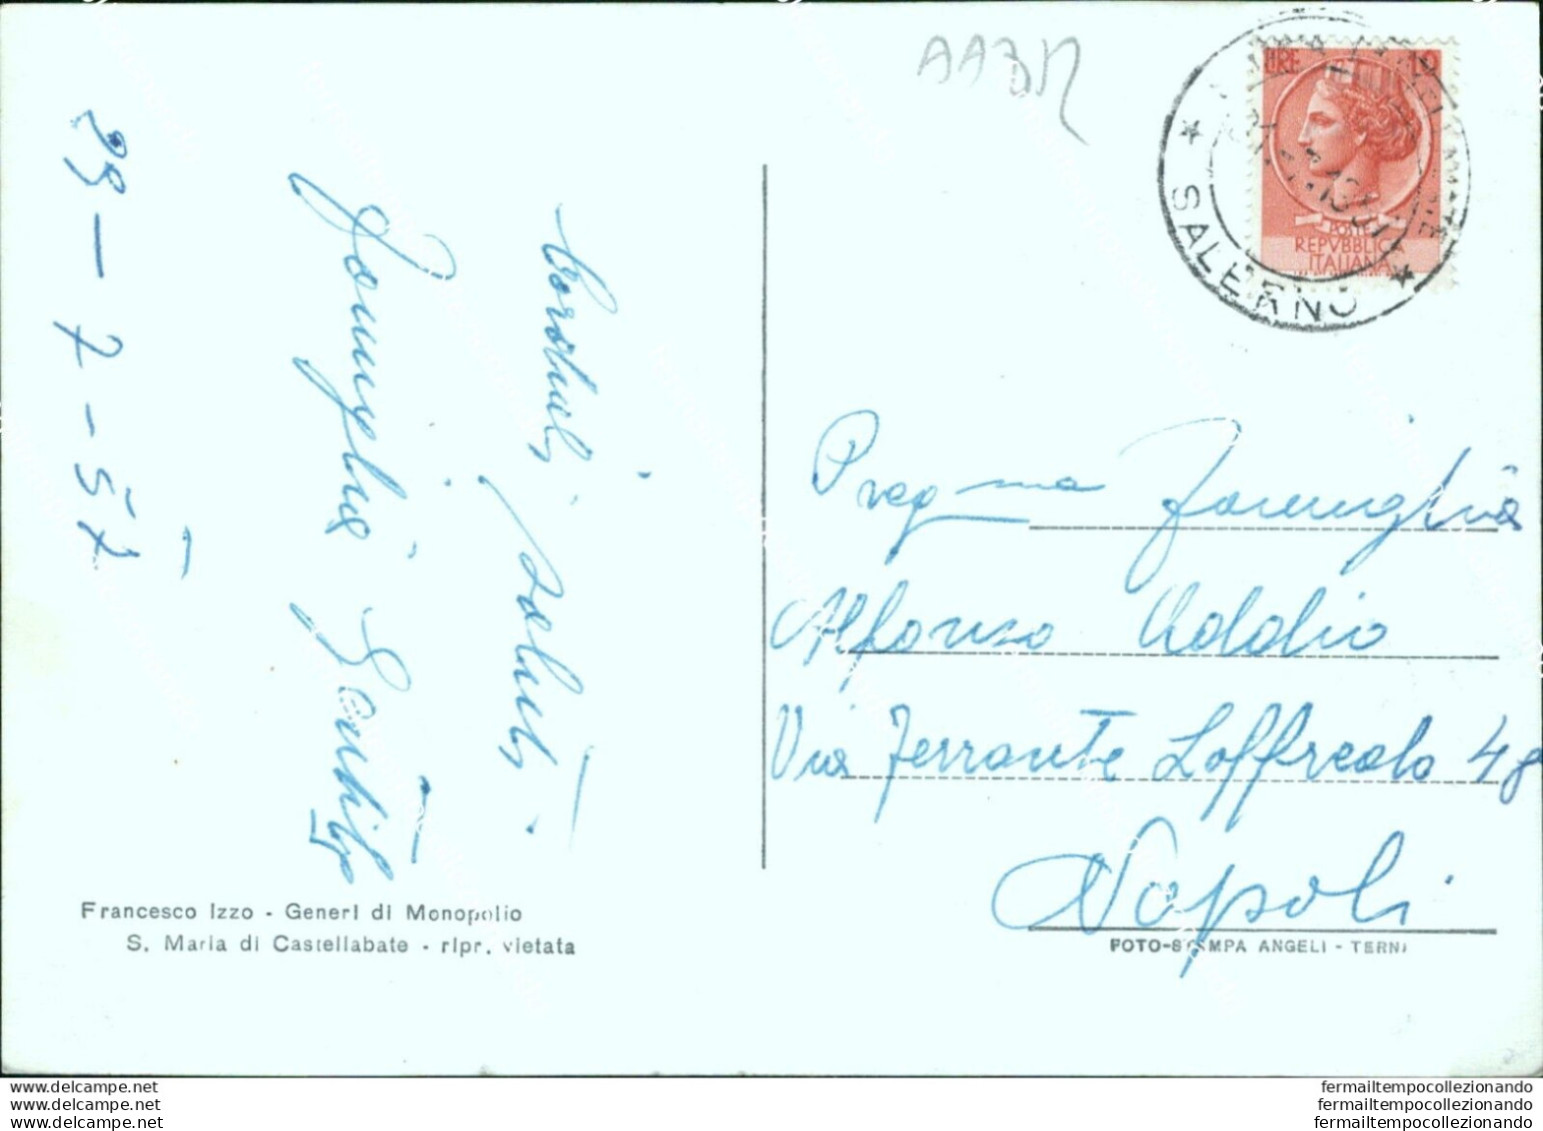 AA312
LIRE 10
POSTE
REPVBBLICA
ITALIANA
* SALERNO *
29-7-57
Cordiali saluti
Famiglia Gentile
Preg ma Famiglia
Alfonso Addio
Via Ferrante Loffredo 48
Napoli
Francesco Izzo - Generi di Monopolio
S. Maria di Castellabate - ripr. vietata
FOTO-STAMPA ANGELI - TERNI
www.delcampe.net
www.delcampe.net
www.delcampe.net
fermailtempocollezionando
fermailtempocollezionando
fermailtempocollezionando